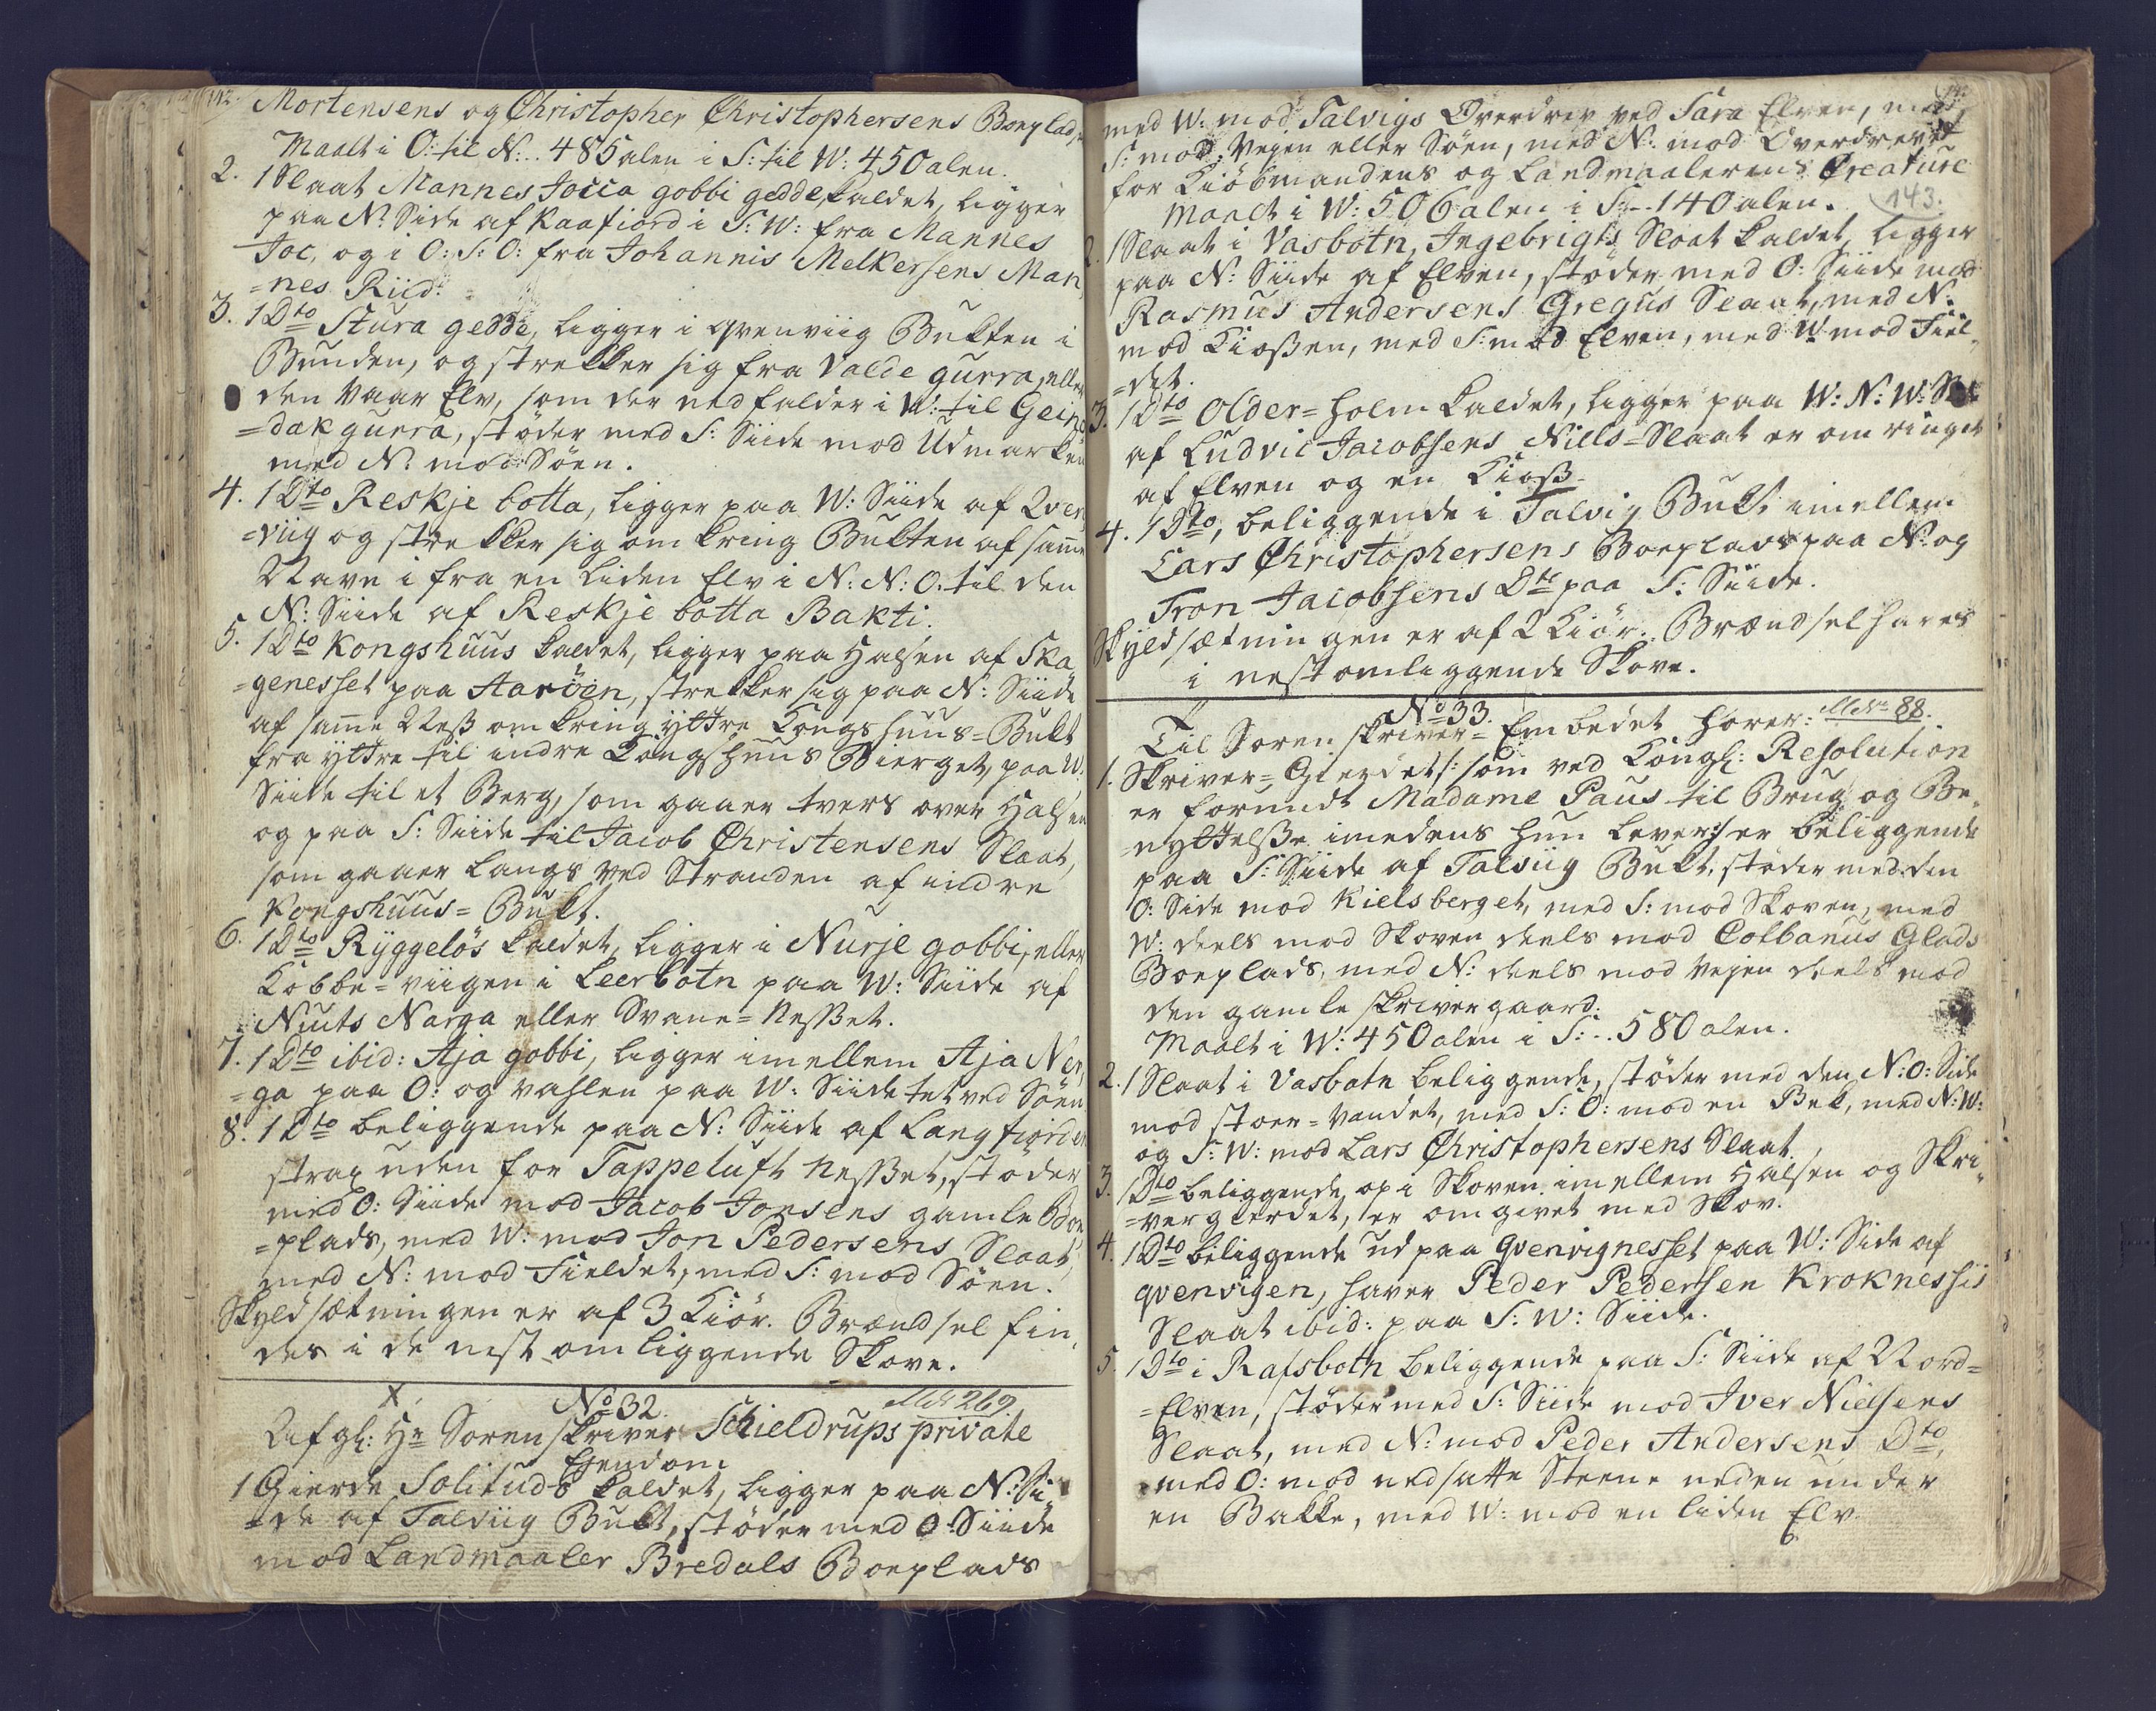 142.
Mortensens og Christopher Christophersens Boeplads,
Maalt i O: til N:.. 485 alen i S: til W: 450 alen.
2. 1 Slaat Mannes Jocca gobbi gedde, kaldet, ligger
paa N: Side af Kaafiord i S: W: fra Mannes
Joc, og i O: S: O: fra Johannis Melkersens Man
=nes Riid.
3. 1 Dto Stura gedde, ligger i Qvenviig Bukten i
Bunden, og strekker sig fra Valde gurra, eller
den Vaar Elv, som der nedfalder i W: til Gein
=dak gurra, støder med S: Siide mod Udmarken
med N: mod Søen.
4. 1 Dto Reskje botta, ligger paa W: Siide af Qven
=viig og strekker sig omkring Bukten af samme
Navn i fra en liden Elv i N: N: O: til den
N: Siide af Reskje botta Bakti.
5. 1 Dto Kongshuus kaldet, ligger paa Halsen af Ska
=genesset paa Aarøen, strekker sig paa N: Siide
af samme Næss omkring yttre Kongshuus=Bukt
fra yttre til indre Kongshuus Bierget, paa W:
Siide til et Berg, som gaaer tvers over Halsen
og paa S: Siide til Jacob Christensens Slaat,
som gaaer langs ved Stranden af indre
Kongshuus=Bukt.
6. 1 Dto Ryggeløs kaldet, ligger i Nurje gobbi, eller
Kobbe=viigen i Leerbotn paa W: Siide af
Niuts Narga eller Svane=Nesset.
7. 1 Dto ibid: Aja gobbi, ligger imellem Aja Ner
=ga paa O: og vahlen paa W: Siide tet ved Søen
8. 1 Dto beliggende paa N: Siide af Langfiorden
strax uden for Tappeluft Nesset, støder
med O: Siide mod Jacob Jonsens gamle Boe
=plads, med W: mod Jon Pedersens Slaat,
med N: mod Fieldet, med S: mod Søen.
Skyldsætningen er af 3 Kiør. Brændsel fin,
des i de nest omliggende Skove.
X. No 32. M N 269
Afgl: Hr Sorenskriver Schieldrups private
Ejendom
1 Gierde Solituds kaldet, ligger paa N: Si
=de af Talviig Bukt, støder med O: Siide
mod Landmaaler Bredals Boeplads
med W: mod Talvigs Overdrev ved Sara Elven, med
S: mod Vejen eller Søen, med N: mod Overdrevet
for Kiøbmandens og Landmaalerens Creature
Maalt i W: 506 alen i S:.. 140 alen.
143.
2. 1 Slaat i Vasbotn, Ingebrigts Slaat kaldet, ligger
paa N: Siide af Elven, støder med O: Siide mod
Rasmus Andersens Gregus Slaat, med N.
mod Kiossen, med S: mod Elven, med W: mod Fiel
=det.
3. 1 Dto Older=holm kaldet, ligger paa W: N: W: Side
af Ludvic Jacobsens Niels=Slaat er omringet
af Elven og en Kioss.
4. 1 Dto, beliggende i Talvig Bukt imellem
Lars Christophersens Boeplads paa N: og
Tron Jacobsens Dto paa S: Siide.
Skyldsætningen er af 2 Kiør. Brændsel haves
i nestomliggende Skove.
No 33. M No 88.
Til Sorenskriver=Embedet hører:
1. Skriver=Gierdet /: som ved Kongl: Resolution
er forundt Madame Paus til Brug og Be,
=nyttelsse imedens hun lever :/ er beliggende
paa S: Siide af Talviig Bukt, støder med den
O: Side mod Kielsberget, med S: mod Skoven, med
W: deels mod Skoven deels mod Colbanus Glads
Boeplads, med N: deels mod Vejen deels mod
den gamle skrivergaard.
Maalt i W: 450 alen i S:.. 580 alen.
2. 1 Slaat i Vasbotn beliggende, støder med den N: O: Side
mod stoer=Vandet, med S: O: mod en Bek, med N: W:
og S: W: mod Lars Christophersens Slaat.
3. 1 Dto beliggende op i Skoven imellem Halsen og Skri,
=vergierdet, er omgivet med Skov.
4. 1 Dto beliggende ud paa Qvenvignesset paa W: Side af
Qvenvigen, haver Peder Pedersen Kroknessis
Slaat ibid: paa S: W: Siide.
5. 1 Dto i Rafsbotn beliggende paa S: Siide af Nord=
=Elven, støder med S: Siide mod Iver Nielsens
Slaat, med N: mod Peder Andersens Dto,
med O: mod nedsatte Steene neden under
en Bakke, med W: mod en liden Elv.